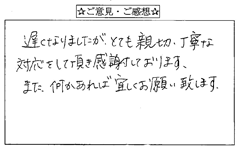 ☆ご意見・ご感想☆
遅くなりましたが、とても親切、丁寧な
対応をして頂き感謝しております。
また、何かあれば宜しくお願い致します。